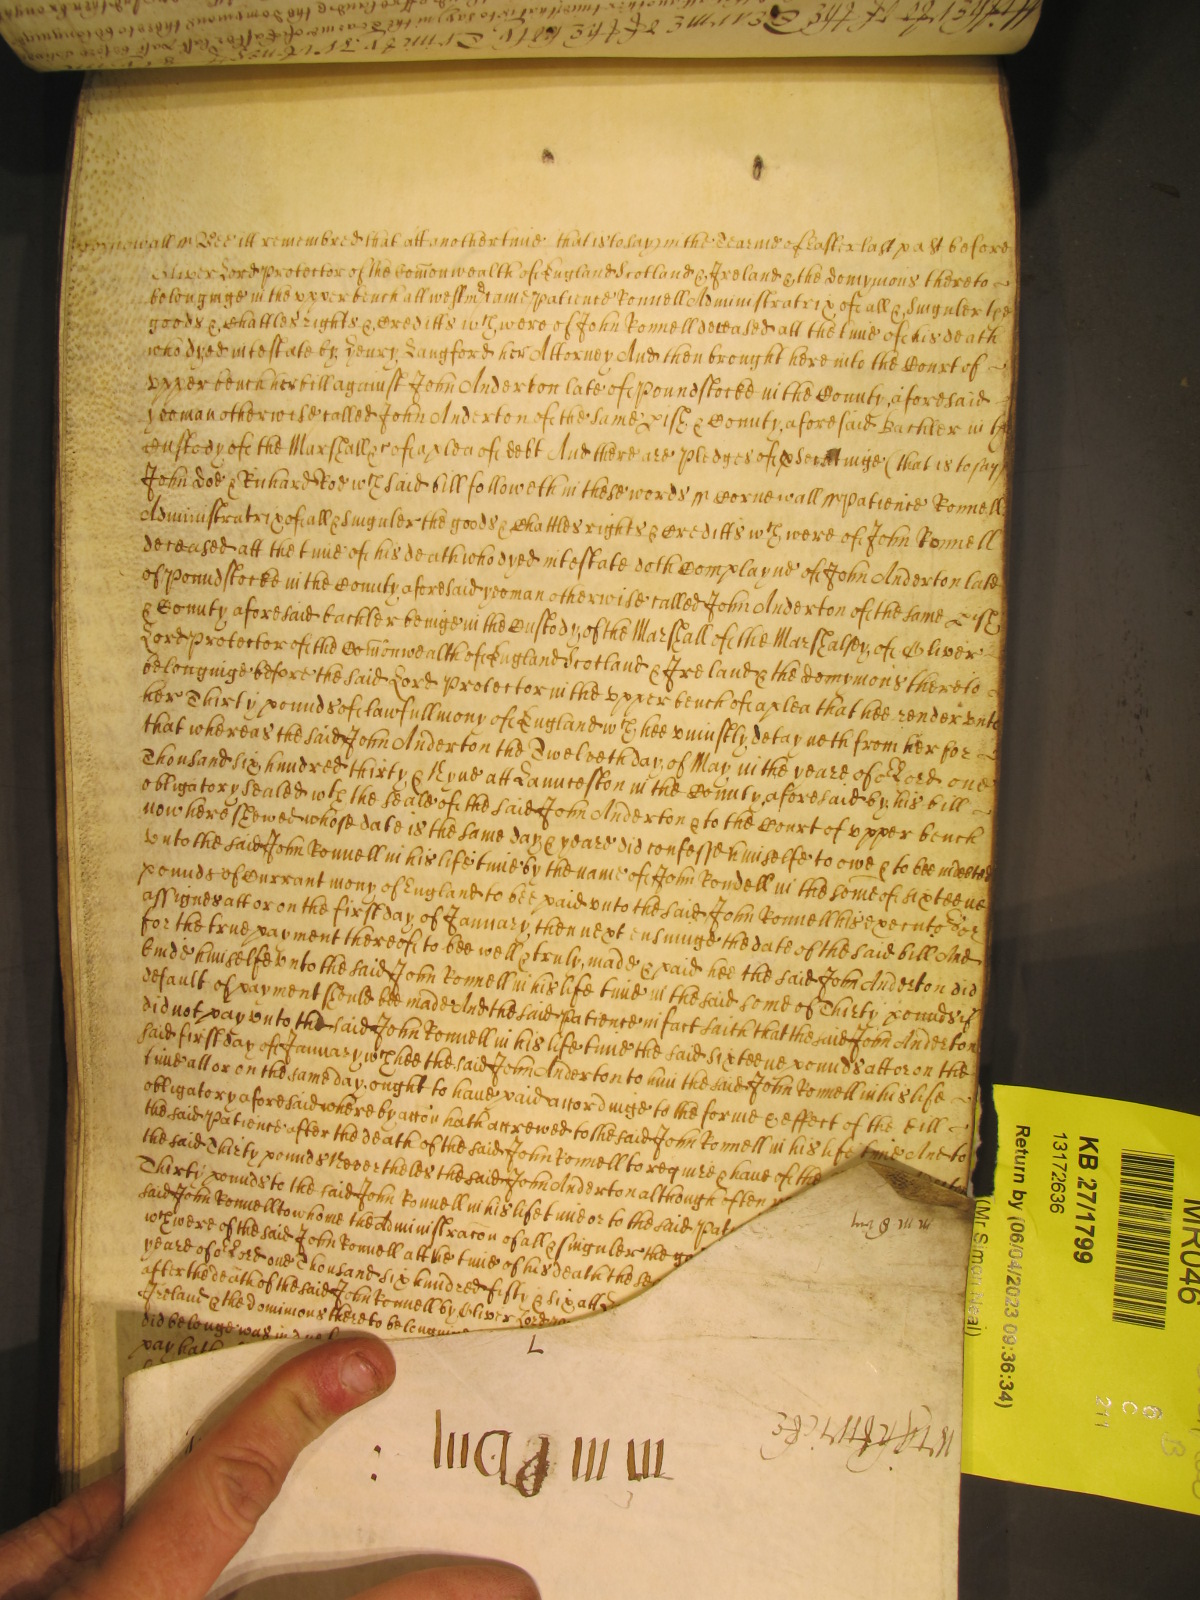 Cornewall ss Bee itt remembred that att another time that is to say in the Tearme of Easter last past before
Oliver Lord Protector of the Comonwealth of England Scotland & Ireland & the domynions thereto
belonginge in the upper bench att Westmr came Patience Ronnell Administratrix of all & singuler the
goods & chattles rights & creditts wch were of John Ronnell deceased att the time of his death
who dyed intestate by Henry Langford her Attorney And then brought here into the Court of
upper bench her bill against John Anderton late of Poundstocke in the County aforesaid
yeoman otherwise called John Anderton of the same pish & County aforesaid Bachler in the
Custody of the Marshall &c of a plea of debt And there are pledges of prosecutinge (that is to say)
John Doe & Richard Roe wch said bill followeth in these words ss Cornewall ss Patience Ronnell
Administratrix of all & singuler the goods & chattles rights & creditts wch were of John Ronnell
deceased att the time of his death who dyed intestate doth Complayne of John Anderton late
of Poundstocke in the County aforesaid yeoman otherwise called John Anderton of the same pish
& County aforesaid bachler beinge in the Custody of the Marshall of the Marshalsey of Oliver
Lord Protector of the Comonwealth of England Scotland & Ireland & the domynions thereto
belonginge before the said Lord Protector in the upper bench of a plea that hee render unto
her Thirty pounds of lawfull mony of England wch hee uniustly detayneth from her for
that whereas the said John Anderton the Twelveth day of May in the yeare of or Lord one
Thousand six hundred thirty & Nyne att Launceston in the County aforesaid by his bill
obligatory sealed wth the seale of the said John Anderton & to the Court of upper bench
now here shewed whose date is the same day & yeare did confesse himselfe to owe & to bee indebted
unto the said John Ronnell in his life time by the name of John Rondell in the some of sixteene
pounds of Currant mony of England to bee paid unto the said John Ronnell his executors or
assignes att or on the first day of January then next ensuinge the date of the said bill And
for the true payment thereof to bee well & truly made & paid hee the said John Anderton did
binde himselfe unto the said John Ronnell in his life time in the said some of Thirty pounds if
default of payment should bee made And the said Patience in fact saith that the said John Anderton
did not pay unto the said John Ronnell in his life time the said sixteene pounds att or on the
said first day of January wch hee the said John Anderton to him the said John Ronnell in his life
time att or on the same day ought to have paid accordinge to the forme & effect of the bill
obligatory aforesaid whereby accon hath accrewed to the said John Ronnell in his life time And to
the said Patience after the death of the said John Ronnell to require & have of the
the said Thirty pounds Neverthelesse the said John Anderton although often
Thirty pounds to the said John Ronnell in his life time or to the said Pat
said John Ronnell to whome the Administracon of all & singuler the go
wch were of the said John Ronnell att the time of his death the se
yeare of or Lord one Thousand six hundred fifty & six att
after the death of the said John Ronnell by Oliver Lord
Ireland & the dominions thereto belonginge
did belonge was in
pay hath
KB 27/1799
13172636
Return by (06/04/2023 09:36:34)
(Mr Simon Neal)